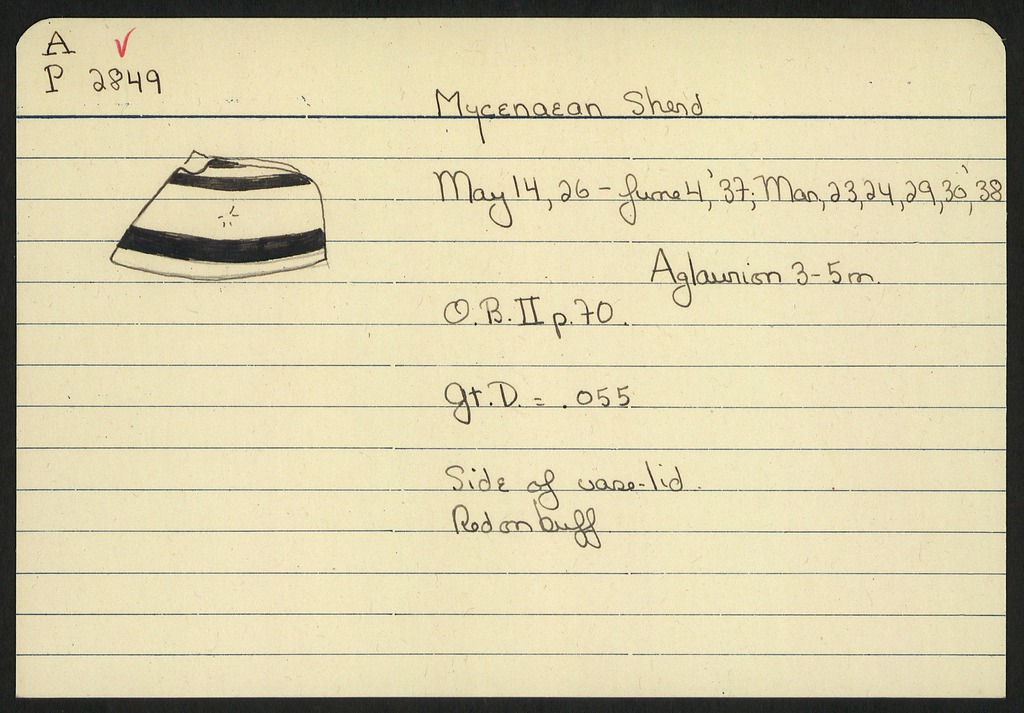 A ✓
P 2849
Mycenaean Sherd
May 14, 26 - June 4, '37; Mar, 23, 24, 29, 30, '38
Aglaurion 3-5 m.
O.B. II p. 70.
Gt. D. = .055
Side of vase-lid.
Red on buff